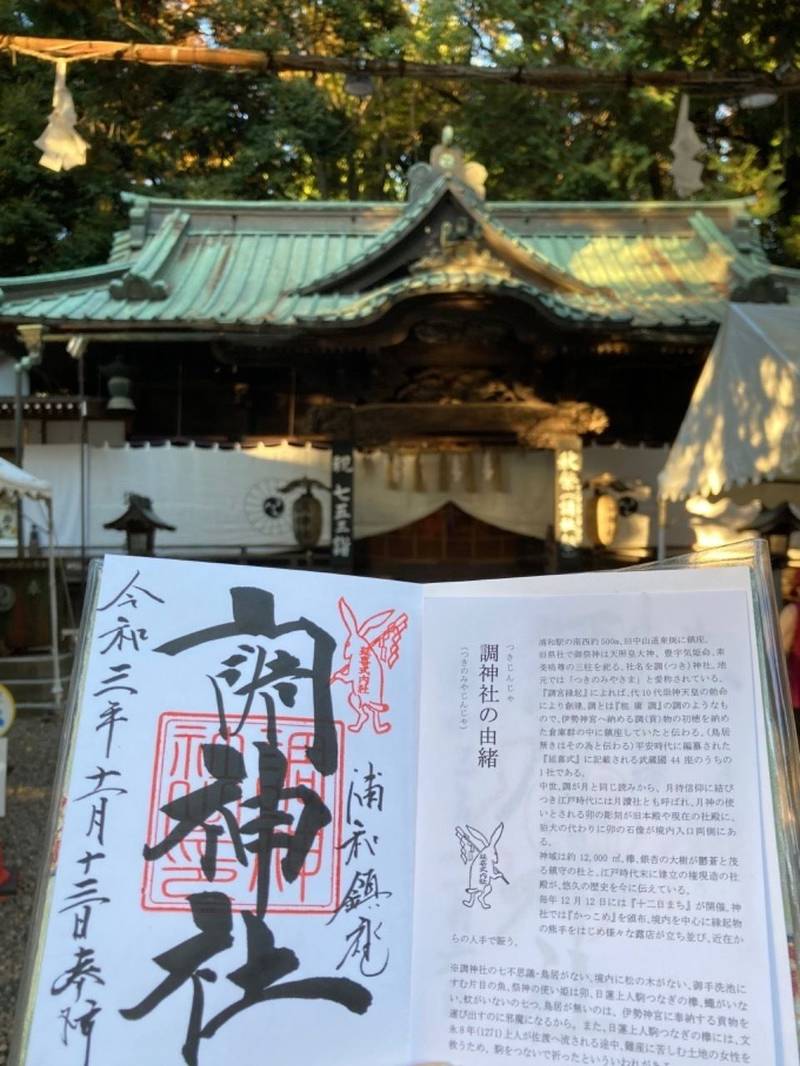 祝 七五三詣
令和三年十一月十三日奉拝
調神社
延喜式内社
調神社印
浦和鎮座
つきじんじゃ
調神社の由緒
(つきのみやじんじゃ)
延喜式内社
浦和駅の南西約500m、旧中山道東側に鎮座。
旧県社で御祭神は天照皇大神、豊宇気姫命、素
美嗚尊の三柱を祀る。社名を調(つき)神社、地
元では「つきのみやさま」と愛称されている。
『調宮縁起』によれば、代10代崇神天皇の勅命
により創建。調とは『租 庸 調』の調のようなも
ので、伊勢神宮へ納める調(貢)物の初穂を納め
た倉庫群の中に鎮座していたと伝わる。(鳥居
無きはその為と伝わる)平安時代に編纂された
『延喜式』に記載される武蔵國 44 座のうちの
1社である。
中世、調が月と同じ読みから、月待信仰に結び
つき江戸時代には月讀社とも呼ばれ、月神の使
いとされる卯の彫刻が旧本殿や現在の社殿に、
狛犬の代わりに卯の石像が境内入口両側にあ
る。
神域は約 12,000 ㎡、欅、銀杏の大樹が鬱蒼と茂
る鎮守の杜と、江戸時代末に建立の権現造の社
殿が、悠久の歴史を今に伝えている。
毎年 12 月 12 日には『十二日まち』が開催。神
社では『かっこめ』を頒布、境内を中心に縁起物
の熊手をはじめ様々な露店が立ち並び、近在か
らの人手で賑う。
※調神社の七不思議・鳥居がない、境内に松の木がない、御手洗池に
すむ片目の魚、祭神の使い姫は卯、日蓮上人駒つなぎの欅、蠅がいな
い、蚊がいないの七つ。鳥居が無いのは、伊勢神宮に奉納する貢物を
運び出すのに邪魔になるから。また、日蓮上人駒つなぎの欅には、文
永8年(1271)上人が佐渡へ流される途中、難産に苦しむ土地の女性を
救うため、駒をつないで祈ったといういわれがある。